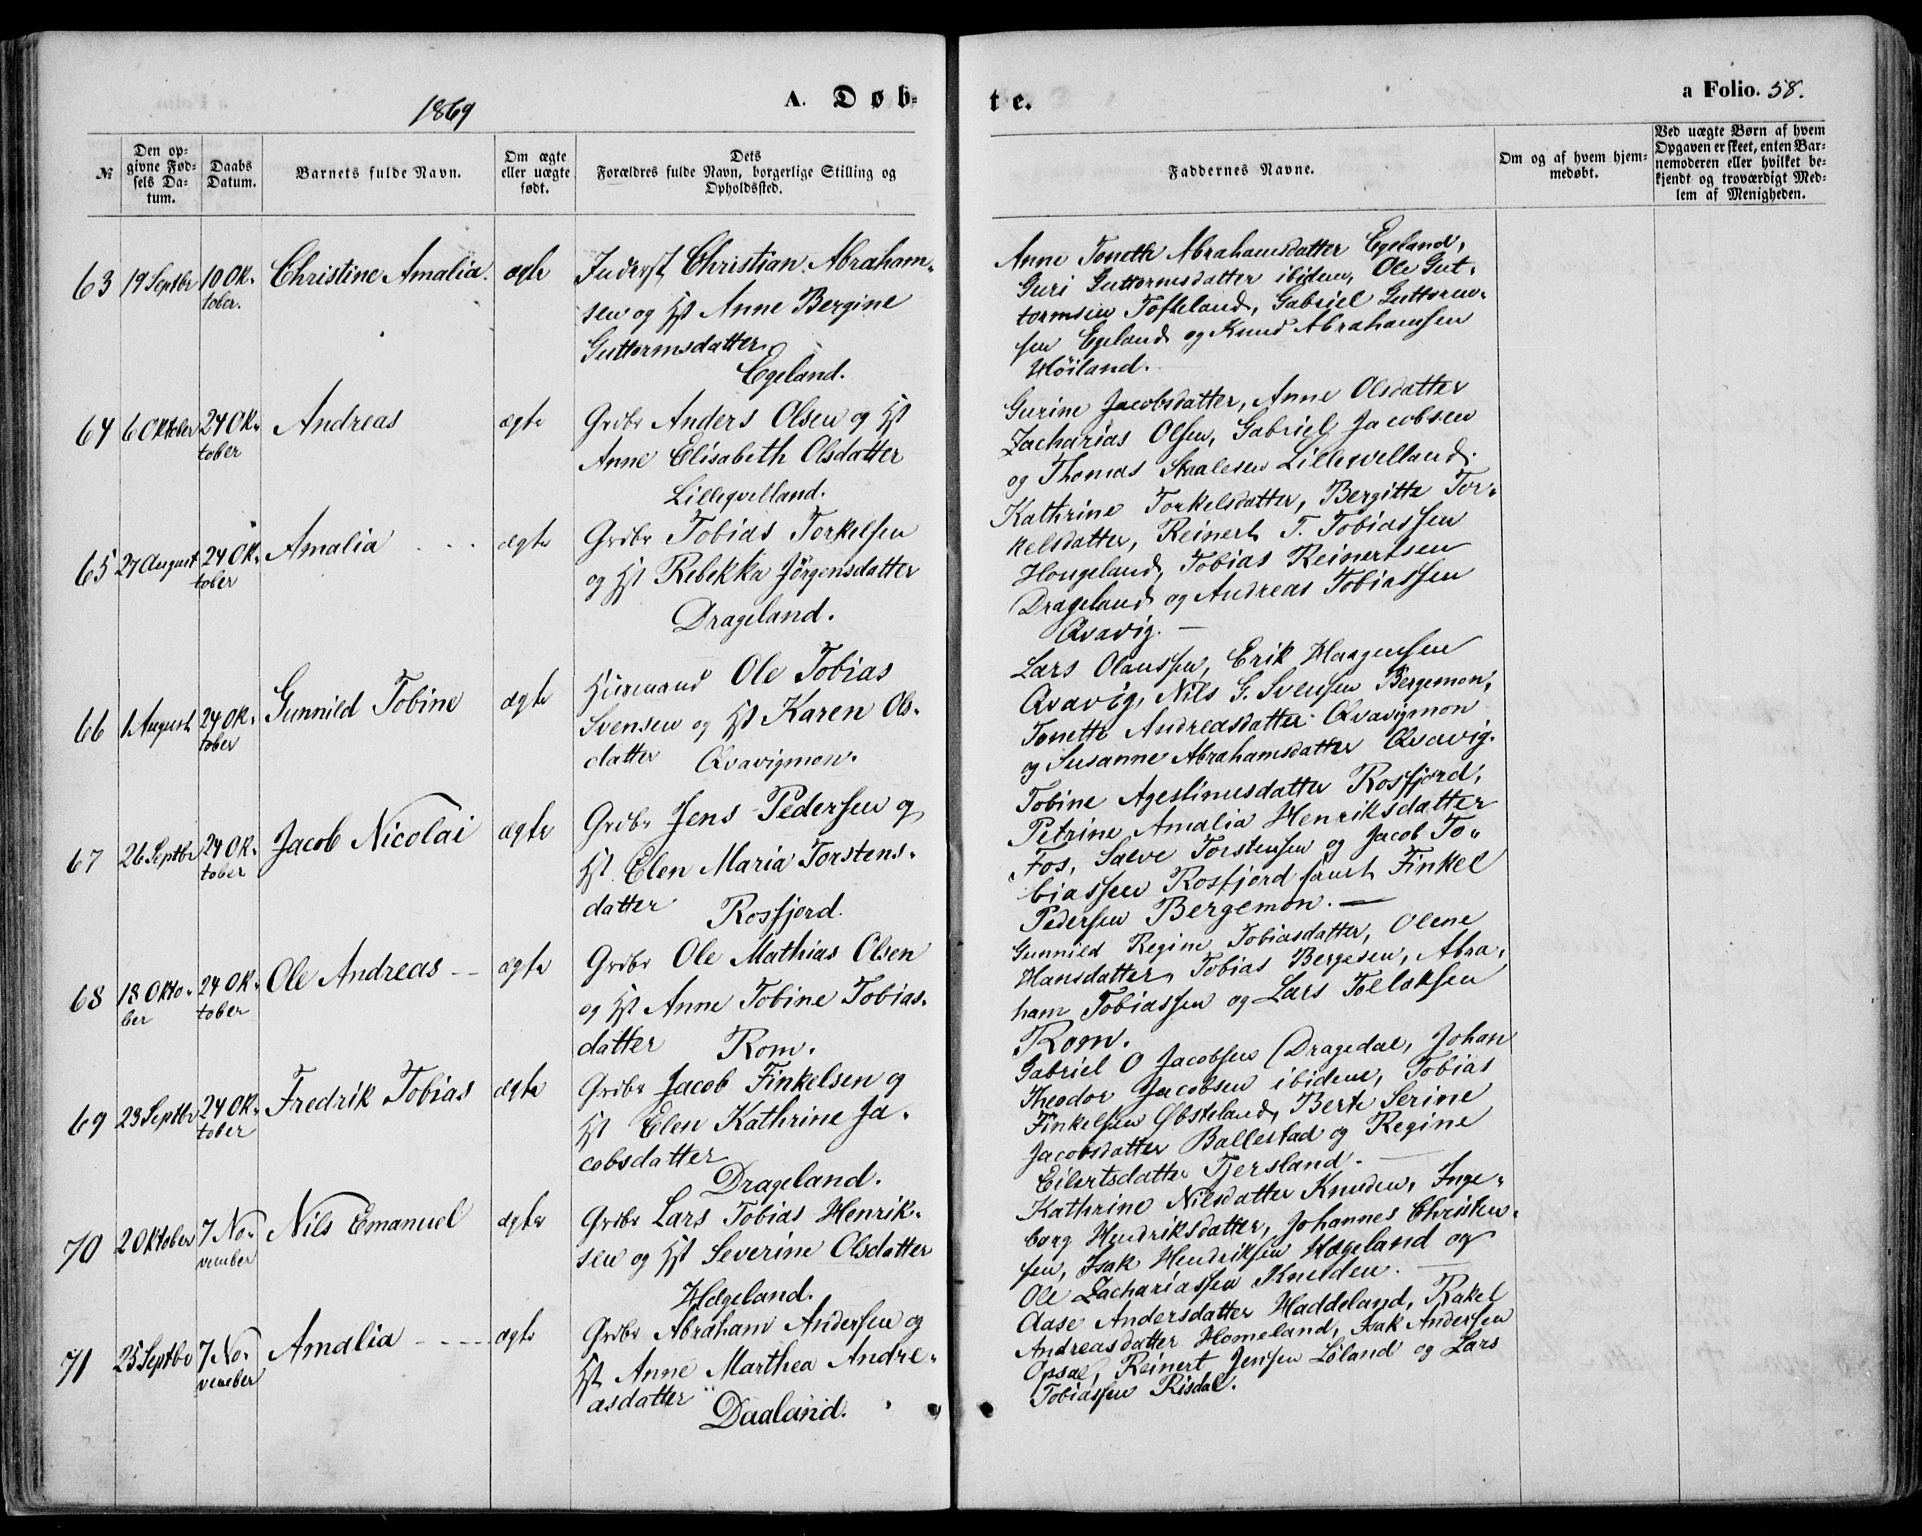 1869
A. Døb-
te.
a Folio. 58.
№
Den op-
givne Fød-
sels Da-
tum.
Daabs
Datum.
Barnets fulde Navn.
Om ægte
eller uægte
født.
Dets
Forældres fulde Navn, borgerlige Stilling og
Opholdssted.
Faddernes Navne.
Om og af hvem hjem-
medøbt.
Ved uægte Børn af hvem
Opgaven er skeet, enten Bar-
nemoderen eller hvilket be-
kjendt og troværdigt Med-
lem af Menigheden.
63 19 Septbr 10 Ok-
tober.
Christine Amalia.
ægte
Inderst Christian Abraham-
sen og Hst Anne Bergine
Guttormsdatter
Egeland.
Anne Tonette Abrahamsdatter Egeland,
Guri Guttormsdatter ibidem, Ole Gut-
tormsen Tofteland, Gabriel Guttorm-
sen Egeland og Knud Abrahamsen
Høiland.
64 6 Oktober 24 Ok-
tober
Andreas
ægte
Grdbr Anders Olsen og Hst
Anne Elisabeth Olsdatter
Lilleqvelland.
Gurine Jacobsdatter, Anne Olsdatter
Zacharias Olsen, Gabriel Jacobsen
og Thomas Staalesen Lillewelland.
65 27 August 24 Ok-
tober
Amalia
ægte
Grdbr Tobias Torkelsen
og Hst Rebekka Jørgensdatter
Drageland.
Kathrine Torkelsdatter, Bergitte Tor-
kelsdatter, Reinert T. Tobiassen
Hougeland, Tobias Reinertsen
Drageland og Andreas Tobiassen
Qvavig.
66 1 August 24 Ok-
tober
Gunnild Tobine
ægte
Husmand Ole Tobias
Svensen og Hst Karen Ols-
datter Qvavigmon.
Lars Olaussen, Erik Haagensen
Qvavig, Nils G. Svensen Bergemon,
Tonette Andreasdatter Qvavigmon
og Susanne Abrahamsdatter Qvavig.
67 26 Septbr 24 Ok-
tober
Jacob Nicolai
ægte
Grdbr Jens Pedersen og
Hst Elen Maria Torstens-
datter Rosfjord.
Tobine Agestinusdatter Rosfjord,
Petrine Amalia Henriksdatter
Fos, Salve Torstensen og Jacob To-
biassen Rosfjord samt Finkel
Pedersen Bergemon.
68 18 Okto-
ber
24 Ok-
tober
Ole Andreas
ægte
Grdbr Ole Mathias Olsen
og Hst Anne Tobine Tobias-
datter Rom.
Gunnild Regine Tobiasdatter, Olene
Hansdatter, Tobias Bergesen, Abra-
ham Tobiassen og Lars Tollaksen
Rom.
69 23 Septbr 24 Ok-
tober
Fredrik Tobias
ægte
Grdbr Jacob Finkelsen og
Hst Elen Kathrine Ja-
cobsdatter
Drageland.
Gabriel O Jacobsen Dragedal, Johan
Theodor Jacobsen ibidem, Tobias
Finkelsen Øbsteland, Berte Serine
Jacobsdatter Ballestad og Regine
Eilertsdatter Tjersland.
70 2 Oktober 7 No-
vember
Nils Emanuel
ægte
Grdbr Lars Tobias Henrik-
sen og Hst Severine Olsdatter
Hægeland.
Kathrine Nilsdatter Knuden, Inge-
borg Hendriksdatter, Johannes Christen-
sen, Isak Hendriksen Hægeland og
Ole Zachariassen Knuden.
71 25 Septbr 7 No-
vember
Amalia
ægte
Grdbr Abraham Andersen og
Hst Anne Marthea Andre-
asdatter
Daaland.
Aase Andersdatter Haddeland, Rakel
Andreasdatter Homeland, Isak Andersen
Opsal, Reinert Jensen Løland og Lars
Tobiassen Risdal.